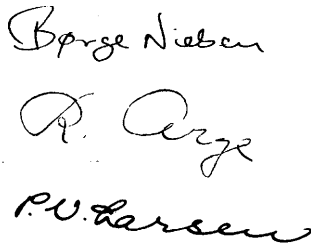 Børge Nielsen
R. Arge
P.V. Larsen